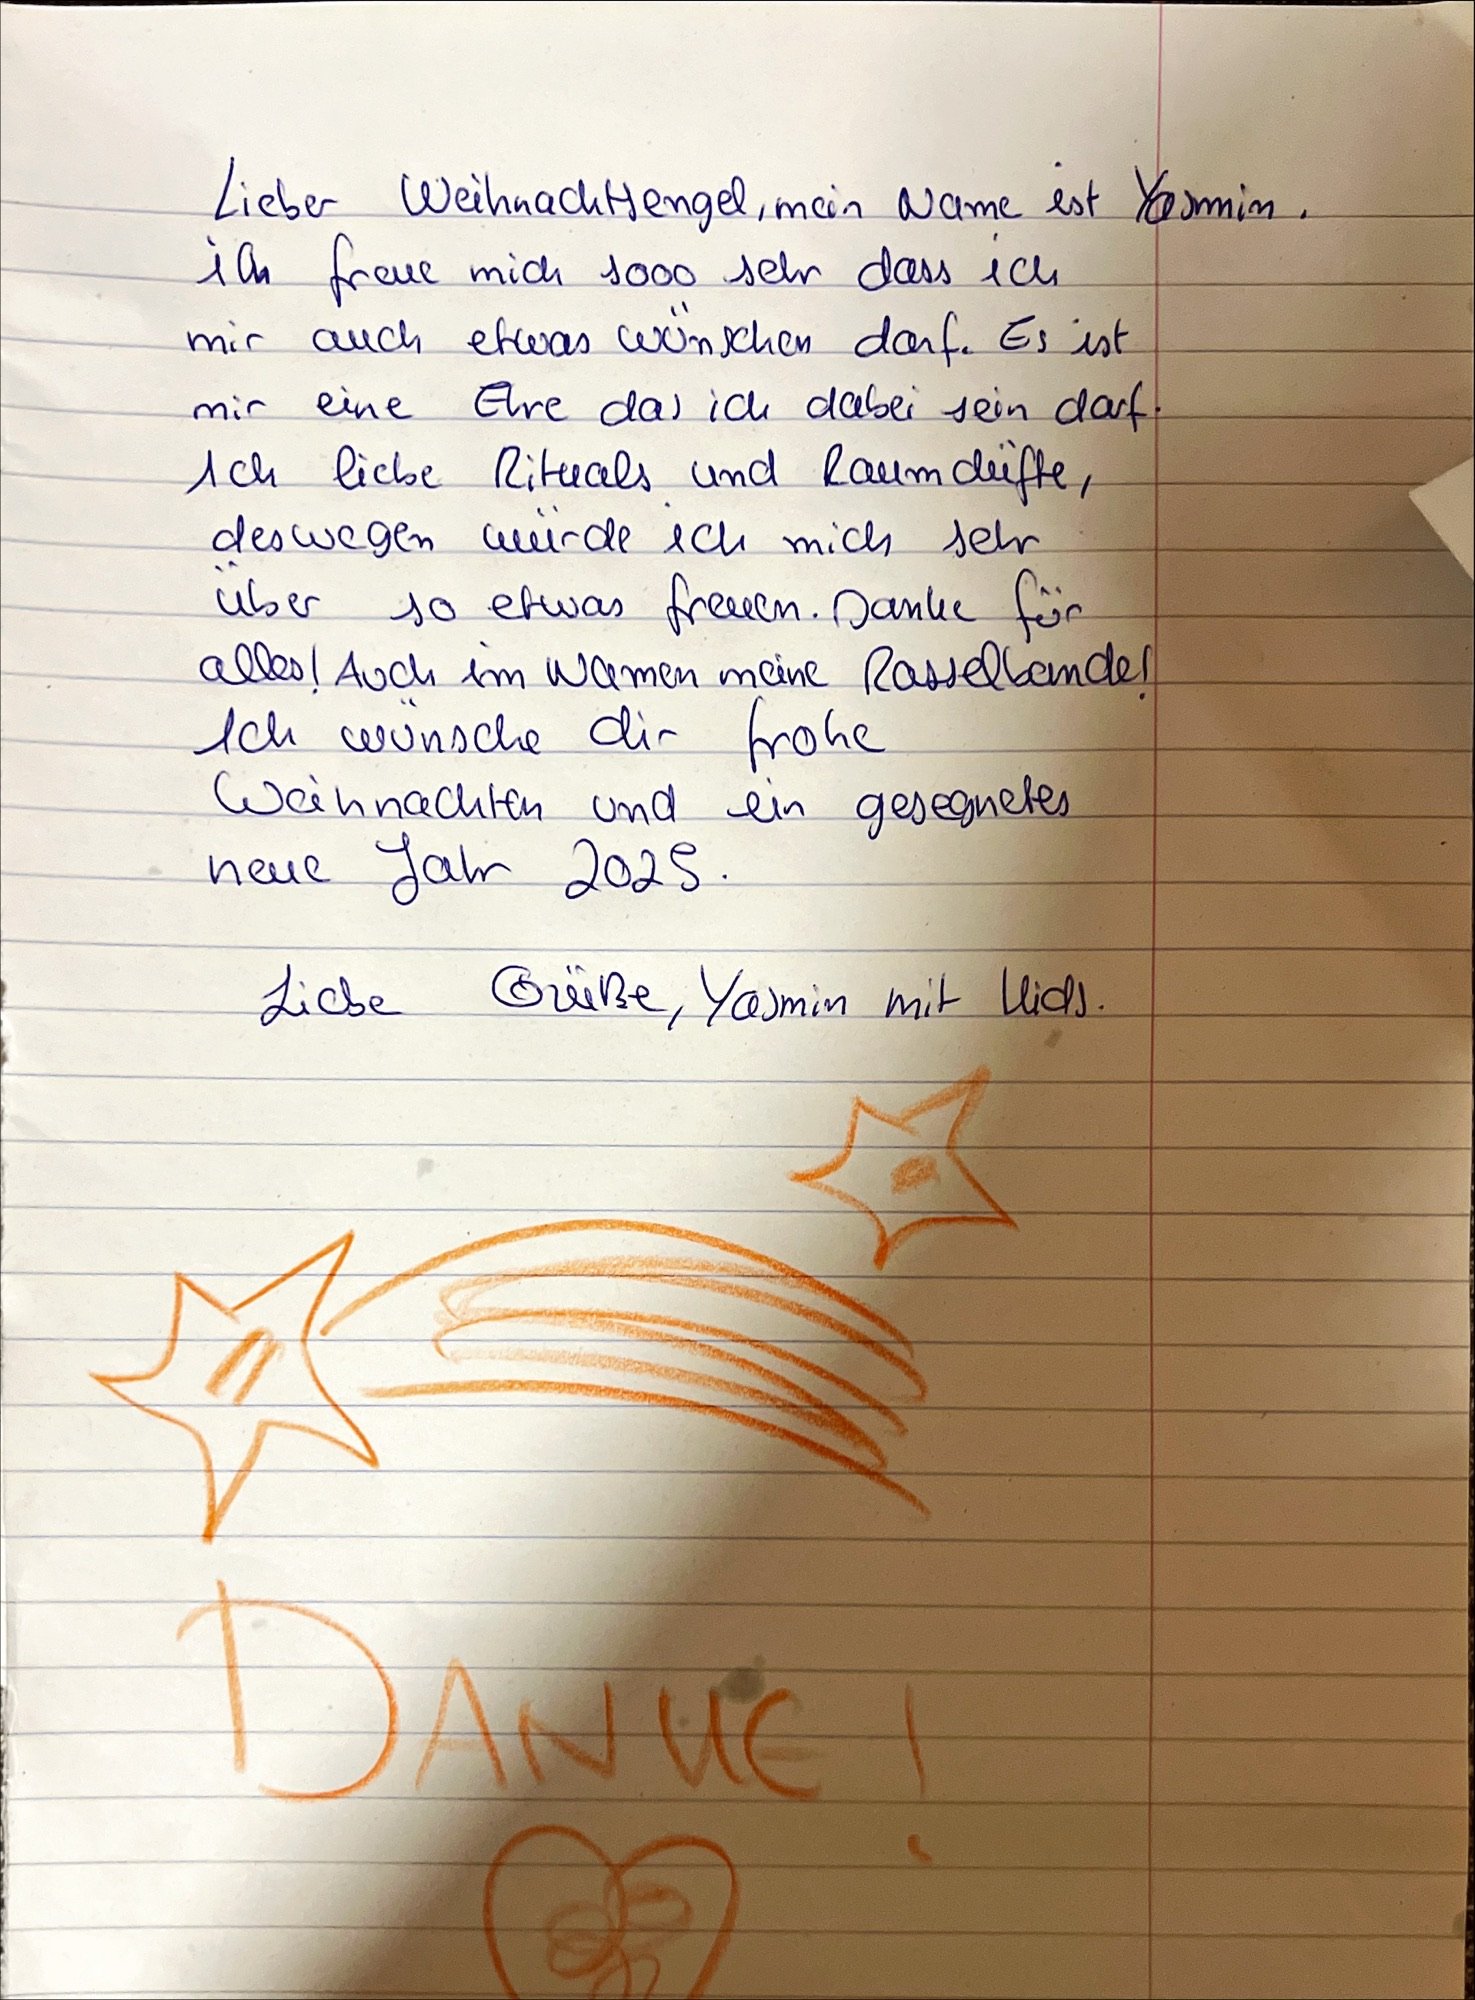 Lieber Weihnachtsengel, mein Name ist Yasmin.
ich freue mich sooo sehr dass ich
mir auch etwas wünschen darf. Es ist
mir eine Ehre das ich dabei sein darf.
Ich liebe Rituals und Raumdüfte,
deswegen würde ich mich sehr
über so etwas freuen. Danke für
alles! Auch im Namen meine Rasselbande!
Ich wünsche dir frohe
Weihnachten und ein gesegnetes
neue Jahr 2025.
Liebe Grüße, Yasmin mit Kids.
DANKE!